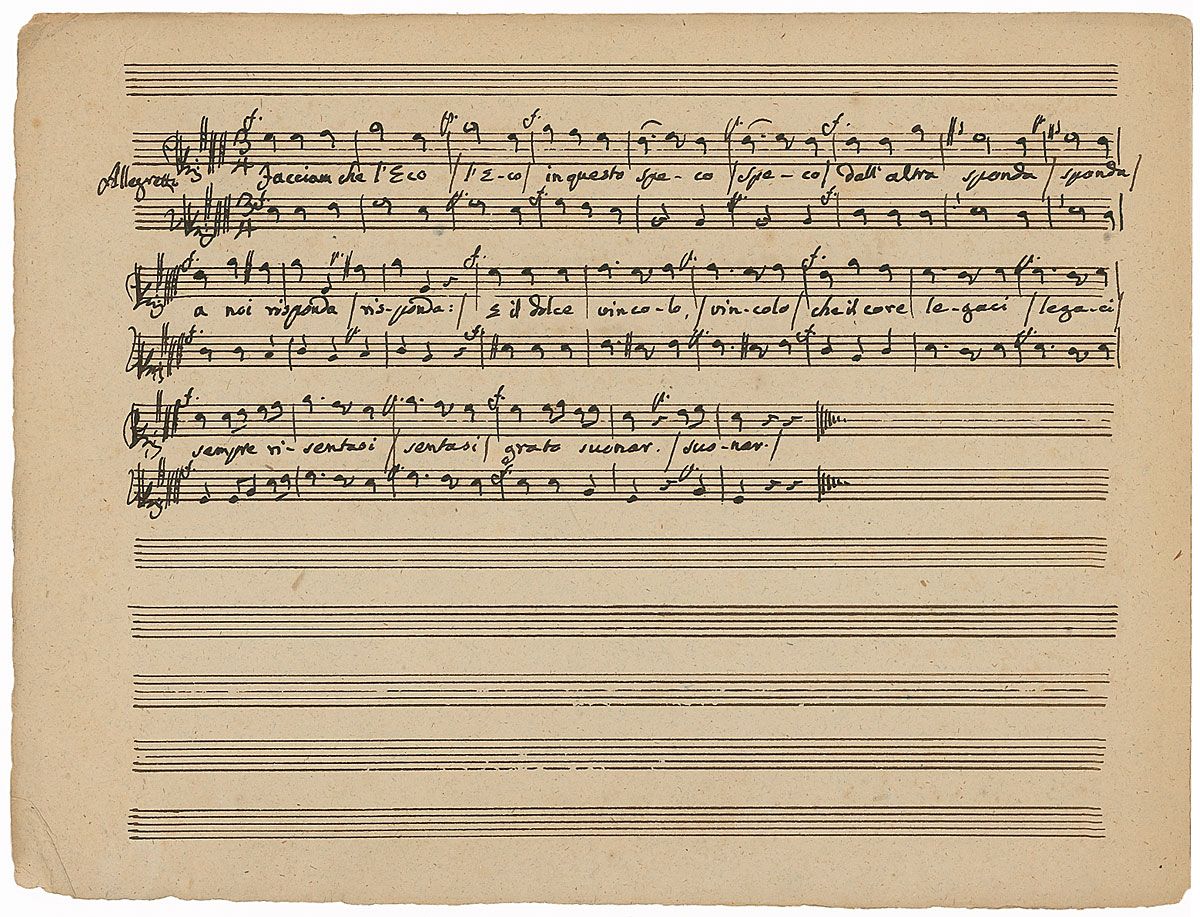 Allegretto Facciam che l'Eco / l'E-co / in questo spe-co / spe-co / dall' altra sponda / sponda /
a noi risponda / ris-ponda: / E il dolce vinco-lo, / vin-colo / che il core le-gaci / lega-ci /
sempre ri-sentasi / sentasi / grato suonar. / suo-nar. /